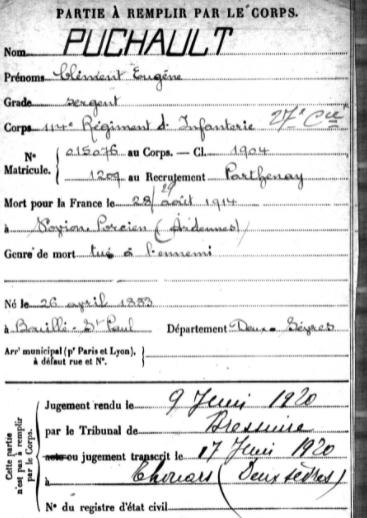 PARTIE À REMPLIR PAR LE CORPS.
Nom PUCHAULT
Prénoms Clément Eugène
Grade sergent
Corps 114e Régiment d'Infanterie 27e Cie
N° Matricule. 015076 au Corps. — Cl. 1904
1209 au Recrutement Parthenay
Mort pour la France le 28/29 août 1914
à Novion Porcien (Ardennes)
Genre de mort tué à l'ennemi
Né le 26 avril 1883
à Bouillé-St Paul Département Deux-Sèvres
Arrt municipal (pr Paris et Lyon),
à défaut rue et N°.
Cette partie n'est pas à remplir par le Corps.
Jugement rendu le 9 Juin 1920
par le Tribunal de Bressuire
acte ou jugement transcrit le 17 Juin 1920
à Thouars (Deux Sèvres)
N° du registre d'état civil